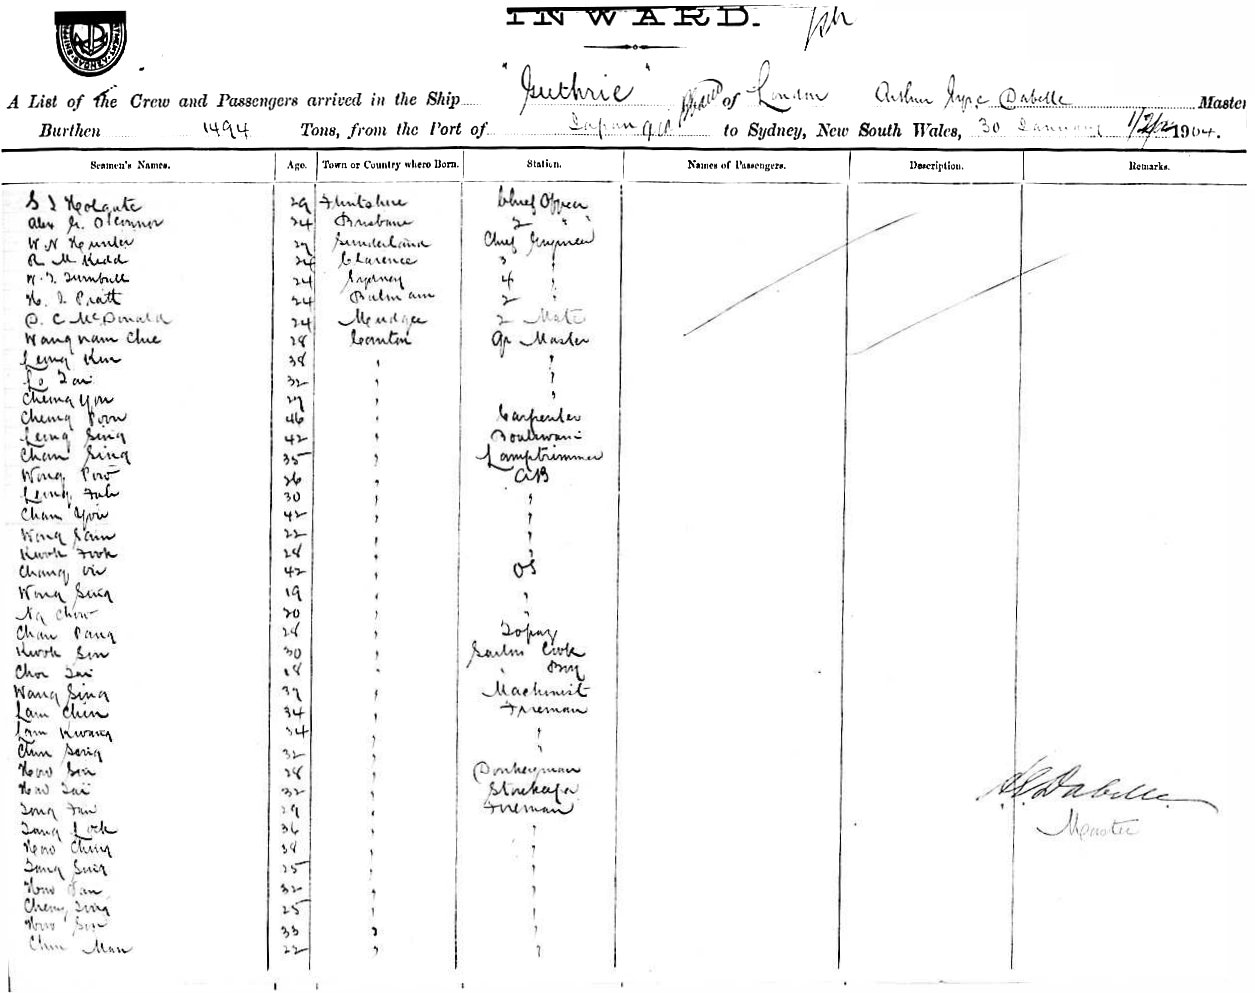 INWARD.
A List of the Crew and Passengers arrived in the Ship "Guthrie" of London Arthur Master
Burthen 1494 Tons, from the Port of Japan to Sydney, New South Wales, 30 January 1904.
Seamen's Names. Age. Town or Country where Born. Station. Names of Passengers. Description. Remarks.
S I Holgate 29 Flintshire Chief Officer
Alex G. O'Connor 24 Brisbane 2 "
W N Hunter 27 Sunderland Chief Engineer
R M Kidd 24 Clarence 3 "
W. J. Turnbull 24 Sydney 4 "
H. J. Pratt 24 Balmain 2 "
D. C McDonald 24 Mudgee 2 Mate
Wang nam Chee 28 Canton Qr Master
Leung Kun 38 " "
Lo Tai 32 " "
Cheung You 27 " "
Cheung Poon 46 " Carpenter
Leung Sing 42 "
Chan Sing 35 " Lamptrimmer
Wong Pow 26 " AB
Leung Fah 30 " "
Chan Yow 42 " "
Wong Sam 22 " "
Kwok Fook 28 " "
Chang 42 " OS
Wong Sing 19 " "
Ng Chow 20 " "
Chan Pang 28 " Topaz
Kwok Sun 30 " Sailors Cook
Choi Tai 18 " " Boy
Wang Sing 37 " Machinist
Lam Chin 34 " Fireman
Lam Kwang 34 " "
Chun Seng 32 " "
How Sin 28 " Donkeyman
How Tai 32 " Storekeeper
Tong Fan 29 " Fireman
Tang Lock 36 " "
How Ching 38 " "
Tang Sing 25 " "
How 32 " "
Cheng Sing 25 " "
How Sin 33 " "
Chu Man 22 " "
Dabelle
Master